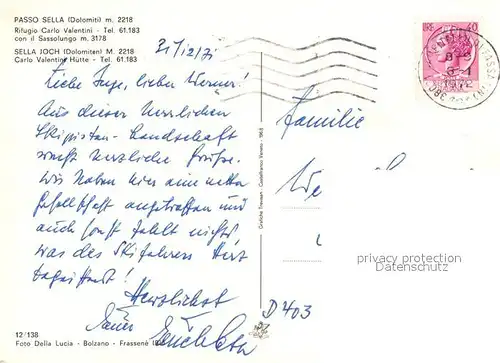 PASSO SELLA (Dolomiti) m. 2218
Rifugio Carlo Valentini - Tel. 61.183
con il Sassolungo m. 3178
SELLA JOCH (Dolomiten) M. 2218
Carlo Valentini Hütte - Tel. 61.183
31/12/71
Liebe Inge, lieber Werner!
Aus dieser herrlichen
Skipisten-Landschaft
herzliche Grüsse.
Wir haben hier eine nette
Gesellschaft angetroffen und
auch sonst fehlt nichts
was des Skifahrers Herz
Herzlichst
Familie
We
D 403
LIRE 40
1972
Grafiche Trevisan - Castelfranco Veneto - 1968
privacy protection
Datenschutz
12/138
Foto Della Lucia - Bolzano - Frassenè